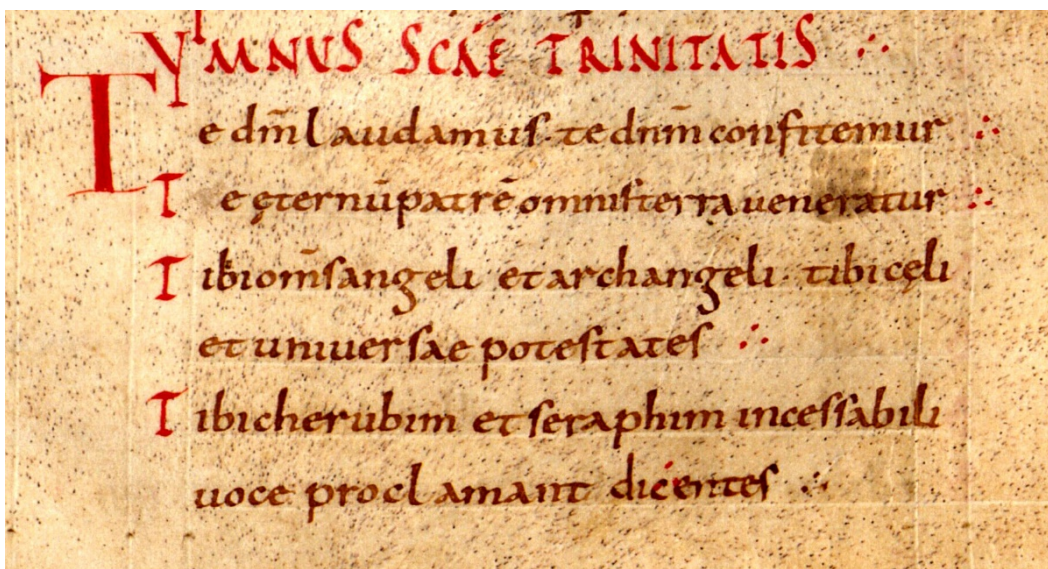 YMNUS SCAE TRINITATIS ∴
Te dm̄ laudamus · te dnm̄ confitemur ∴
Te ęternū patrē omnis terra ueneratur ∴
Tibi om̄s angeli et archangeli · tibi cęli
et uniuersae potestates ∴
Tibi cherubim et seraphim incessabili
uoce proclamant dicentes ∴